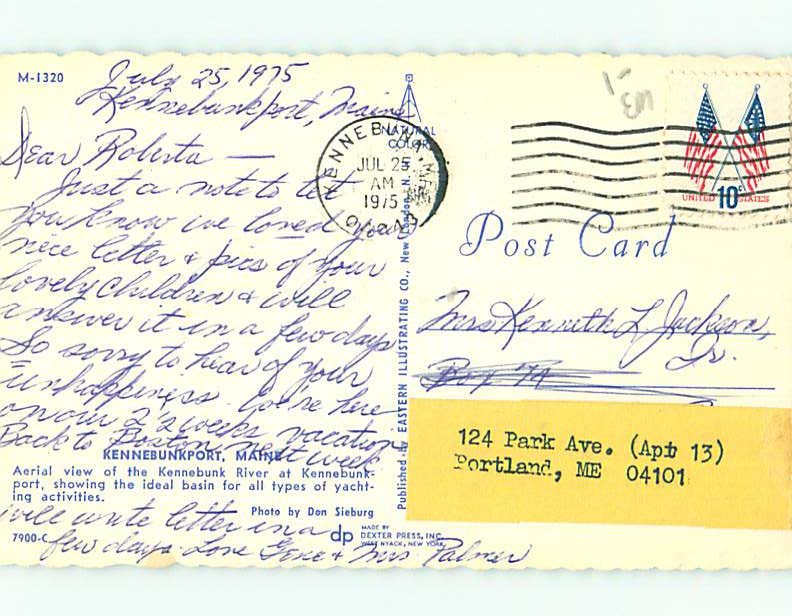 M-1320
July 25, 1975
Kennebunkport, Maine
Dear Roberta —
Just a note to let
you know we loved your
nice letter & pics of your
lovely children & will
answer it in a few days
So sorry to hear of your
unhappiness. We're here
on our 2 weeks vacation
Back to Boston next week
KENNEBUNKPORT, MAINE
Aerial view of the Kennebunk River at Kennebunk-
port, showing the ideal basin for all types of yacht-
ing activities.
Photo by Don Sieburg
will write letter in a
few days. Love Gene + Mrs Palmer
7900-C
dp
MADE BY
DEXTER PRESS, INC.
WEST NYACK, NEW YORK
NATURAL
COLOR
Published by EASTERN ILLUSTRATING CO., New London, N.
KENNEBUN
JUL 25
AM
1975
UNITED 10c STATES
Post Card
Mrs Kenneth L Jackson,
Jr.
Box
124 Park Ave. (Apt 13)
Portland, ME 04101